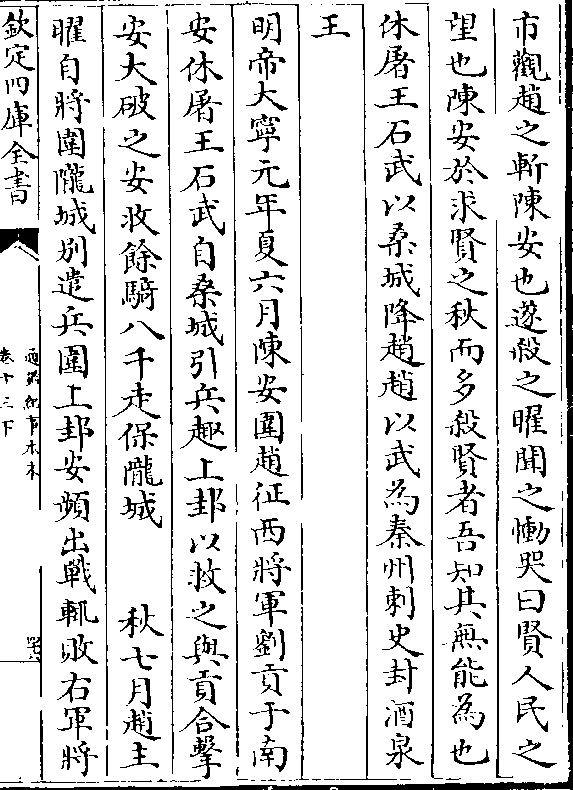 市觀趙之斬陳安也遂殺之曜聞之慟哭曰賢人民之
望也陳安於求賢之秋而多殺賢者吾知其無能為也
休屠王石武以桑城降趙趙以武為秦州刺史封酒泉
王
明帝大寧元年夏六月陳安圍趙征西將軍劉貢于南
安休屠王石武自桑城引兵趣上邽以救之與貢合擊
安大破之安收餘騎八千走保隴城　秋七月趙主
曜自將圍隴城别遣兵圍上邽安頻出戰輒敗右軍將
欽定四庫全書
通鑑紀事本末
卷十三下